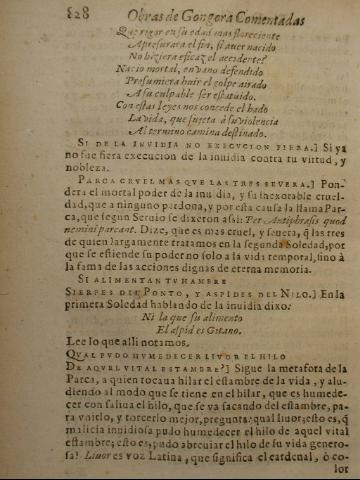 828 Obras de Gongora Comentadas
Que rigor en su edad mas floreciente
Apresurara el fin, si auer nacido
No hiziera eficaz el accidente?
Nacio mortal, en vano defendido
Presumiera huir el golpe airado
A su culpable ser estatuido.
Con estas leyes nos concede el hado
La vida, que sujeta à su violencia
Al termino camina destinado.
SI DE LA INVIDIA NO EXECVCION FIERA.] Si ya
no fue fiera execucion de la inuidia contra tu virtud, y
nobleza.
PARCA CRVEL MAS QVE LAS TRES SEVERA.] Pon-
dera el mortal poder de la inuidia, y su inexorable cruel-
dad, que a ninguno perdona, y por esta causa la llama Par-
ca, que segun Seruio se dixeron assi: Per Antiphrasis quod
nemini parcant. Dize, que es mas cruel, y seuera, q̃ las tres
de quien largamente tratamos en la segunda Soledad, por
que se estiende su poder no solo a la vida temporal, sino à
la fama de las acciones dignas de eterna memoria.
SI ALIMENTAN TV HAMBRE
SIERPES DEL PONTO, Y ASPIDES DEL NILO.] En la
primera Soledad hablando de la inuidia dixo:
Ni la que su alimento
El aspid es Gitano.
Lee lo que alli notamos.
QVAL PVDO HVMEDECER LIVOR EL HILO
DE AQVEL VITAL ESTAMBRE?] Sigue la metafora de la
Parca, a quien tocaua hilar el estambre de la vida, y alu-
diendo al modo que se tiene en el hilar, que es humede-
cer con saliua el hilo, que se va sacando del estambre, pa-
ra vnirlo, y torcerlo mejor, pregunta: qual liuor; esto es, q̃
malicia inuidiosa pudo humedecer el hilo de aquel vital
estambre; esto es, pudo abreuiar el hilo de su vida genero-
sa? Liuor es voz Latina, que significa el cardenal, ò co-
lor